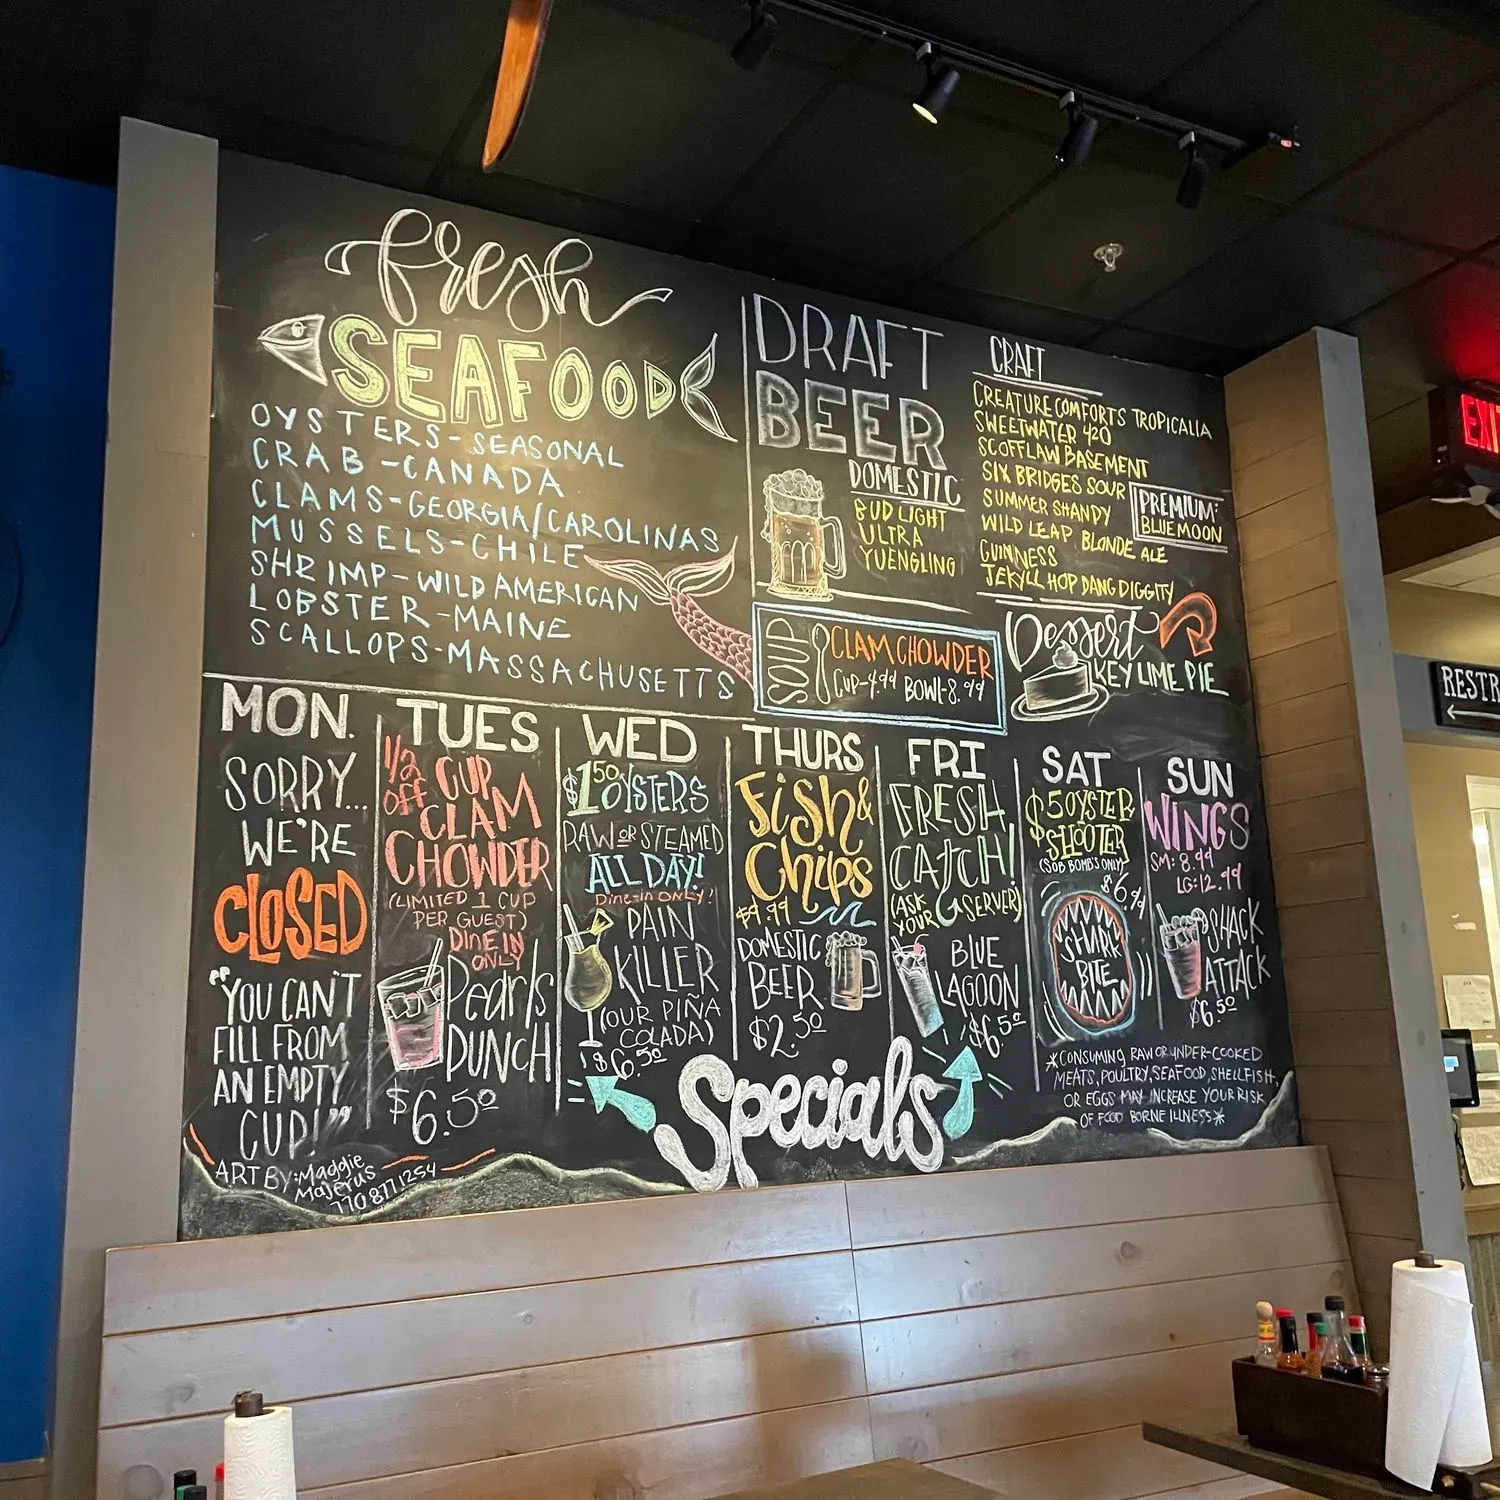 fresh
SEAFOOD
OYSTERS-SEASONAL
CRAB-CANADA
CLAMS-GEORGIA/CAROLINAS
MUSSELS-CHILE
SHRIMP-WILD AMERICAN
LOBSTER-MAINE
SCALLOPS-MASSACHUSETTS
DRAFT
BEER
DOMESTIC
BUD LIGHT
ULTRA
YUENGLING
CRAFT
CREATURE COMFORTS TROPICALIA
SWEETWATER 420
SCOFFLAW BASEMENT
SIX BRIDGES SOUR
SUMMER SHANDY
WILD LEAP BLONDE ALE
GUINNESS
JEKYLL HOP DANG DIGGITY
PREMIUM:
BLUE MOON
SOUP
CLAM CHOWDER
CUP-4.99 BOWL-8.99
Dessert
KEY LIME PIE
MON.
SORRY...
WE'RE
CLOSED
"YOU CAN'T
FILL FROM
AN EMPTY
CUP!"
ART BY: Maggie
Majerus
770 877 1254
TUES
1/2 OFF CUP
CLAM
CHOWDER
(LIMITED 1 CUP
PER GUEST)
DINE IN
ONLY
Pearl's
PUNCH
$6.50
WED
$1.50 OYSTERS
RAW OR STEAMED
ALL DAY!
Dine-in ONLY!
PAIN
KILLER
(OUR PIÑA
COLADA)
$6.50
THURS
Fish &
Chips
$9.99
DOMESTIC
BEER
$2.50
FRI
FRESH
CATCH!
(ASK
YOUR
SERVER)
BLUE
LAGOON
$6.50
SAT
$5 OYSTER
SHOOTER
(SOB BOMB'S ONLY)
$6.99
SHARK
BITE
SUN
WINGS
SM: 8.99
LG: 12.99
SHACK
ATTACK
$6.50
*CONSUMING RAW OR UNDER-COOKED
MEATS, POULTRY, SEAFOOD, SHELLFISH,
OR EGGS MAY INCREASE YOUR RISK
OF FOOD BORNE ILLNESS*
Specials
EXI
RESTR